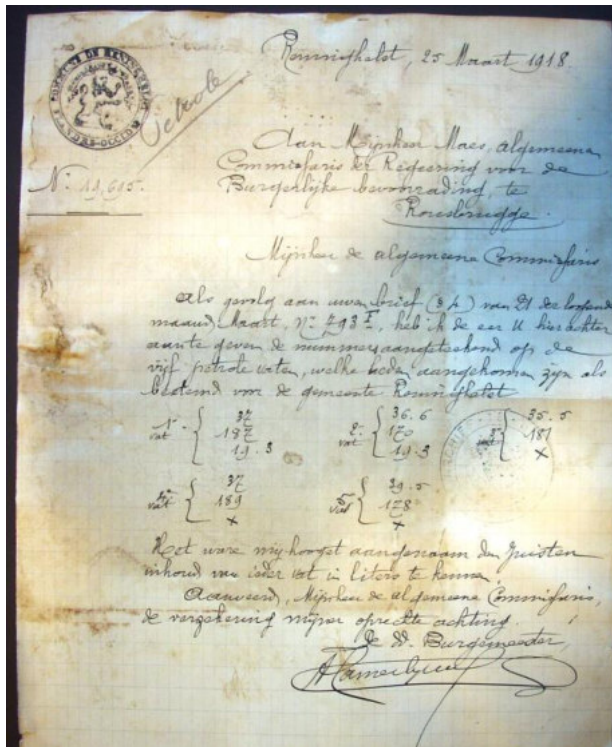 COMMUNE DE RENINGHELST
Reninghelst, 25 Maart 1918.
Petrole
Aan Mijnheer Maes, algemeene
Commissaris der Regeering voor de
N.º 19,615.
Burgerlijke bevoorrading, te
Rousbrugge.
Mijnheer de algemeene Commissaris
Als gevolg aan uwen brief van 21 der loopende
maand Maart, Nº 793 I, heb ik de eer U hierachter
aan te geven de nummers aangeteekend op de
vijf petrole vaten, welke heden aangekomen zijn als
bestemd voor de gemeente Reninghelst
1º vat { 37 187 19.3
2º vat { 36.6 170 19.3
3º vat { 35.5 181 x
4º vat { 37 189 x
5º vat { 39.5 178 x
Het ware mij hoogst aangenaam den juisten
inhoud van ieder vat in liters te kennen.
Aanveerd, Mijnheer de algemeene Commissaris,
de verzekering mijner oprechte achting.
de dd. Burgemeester,